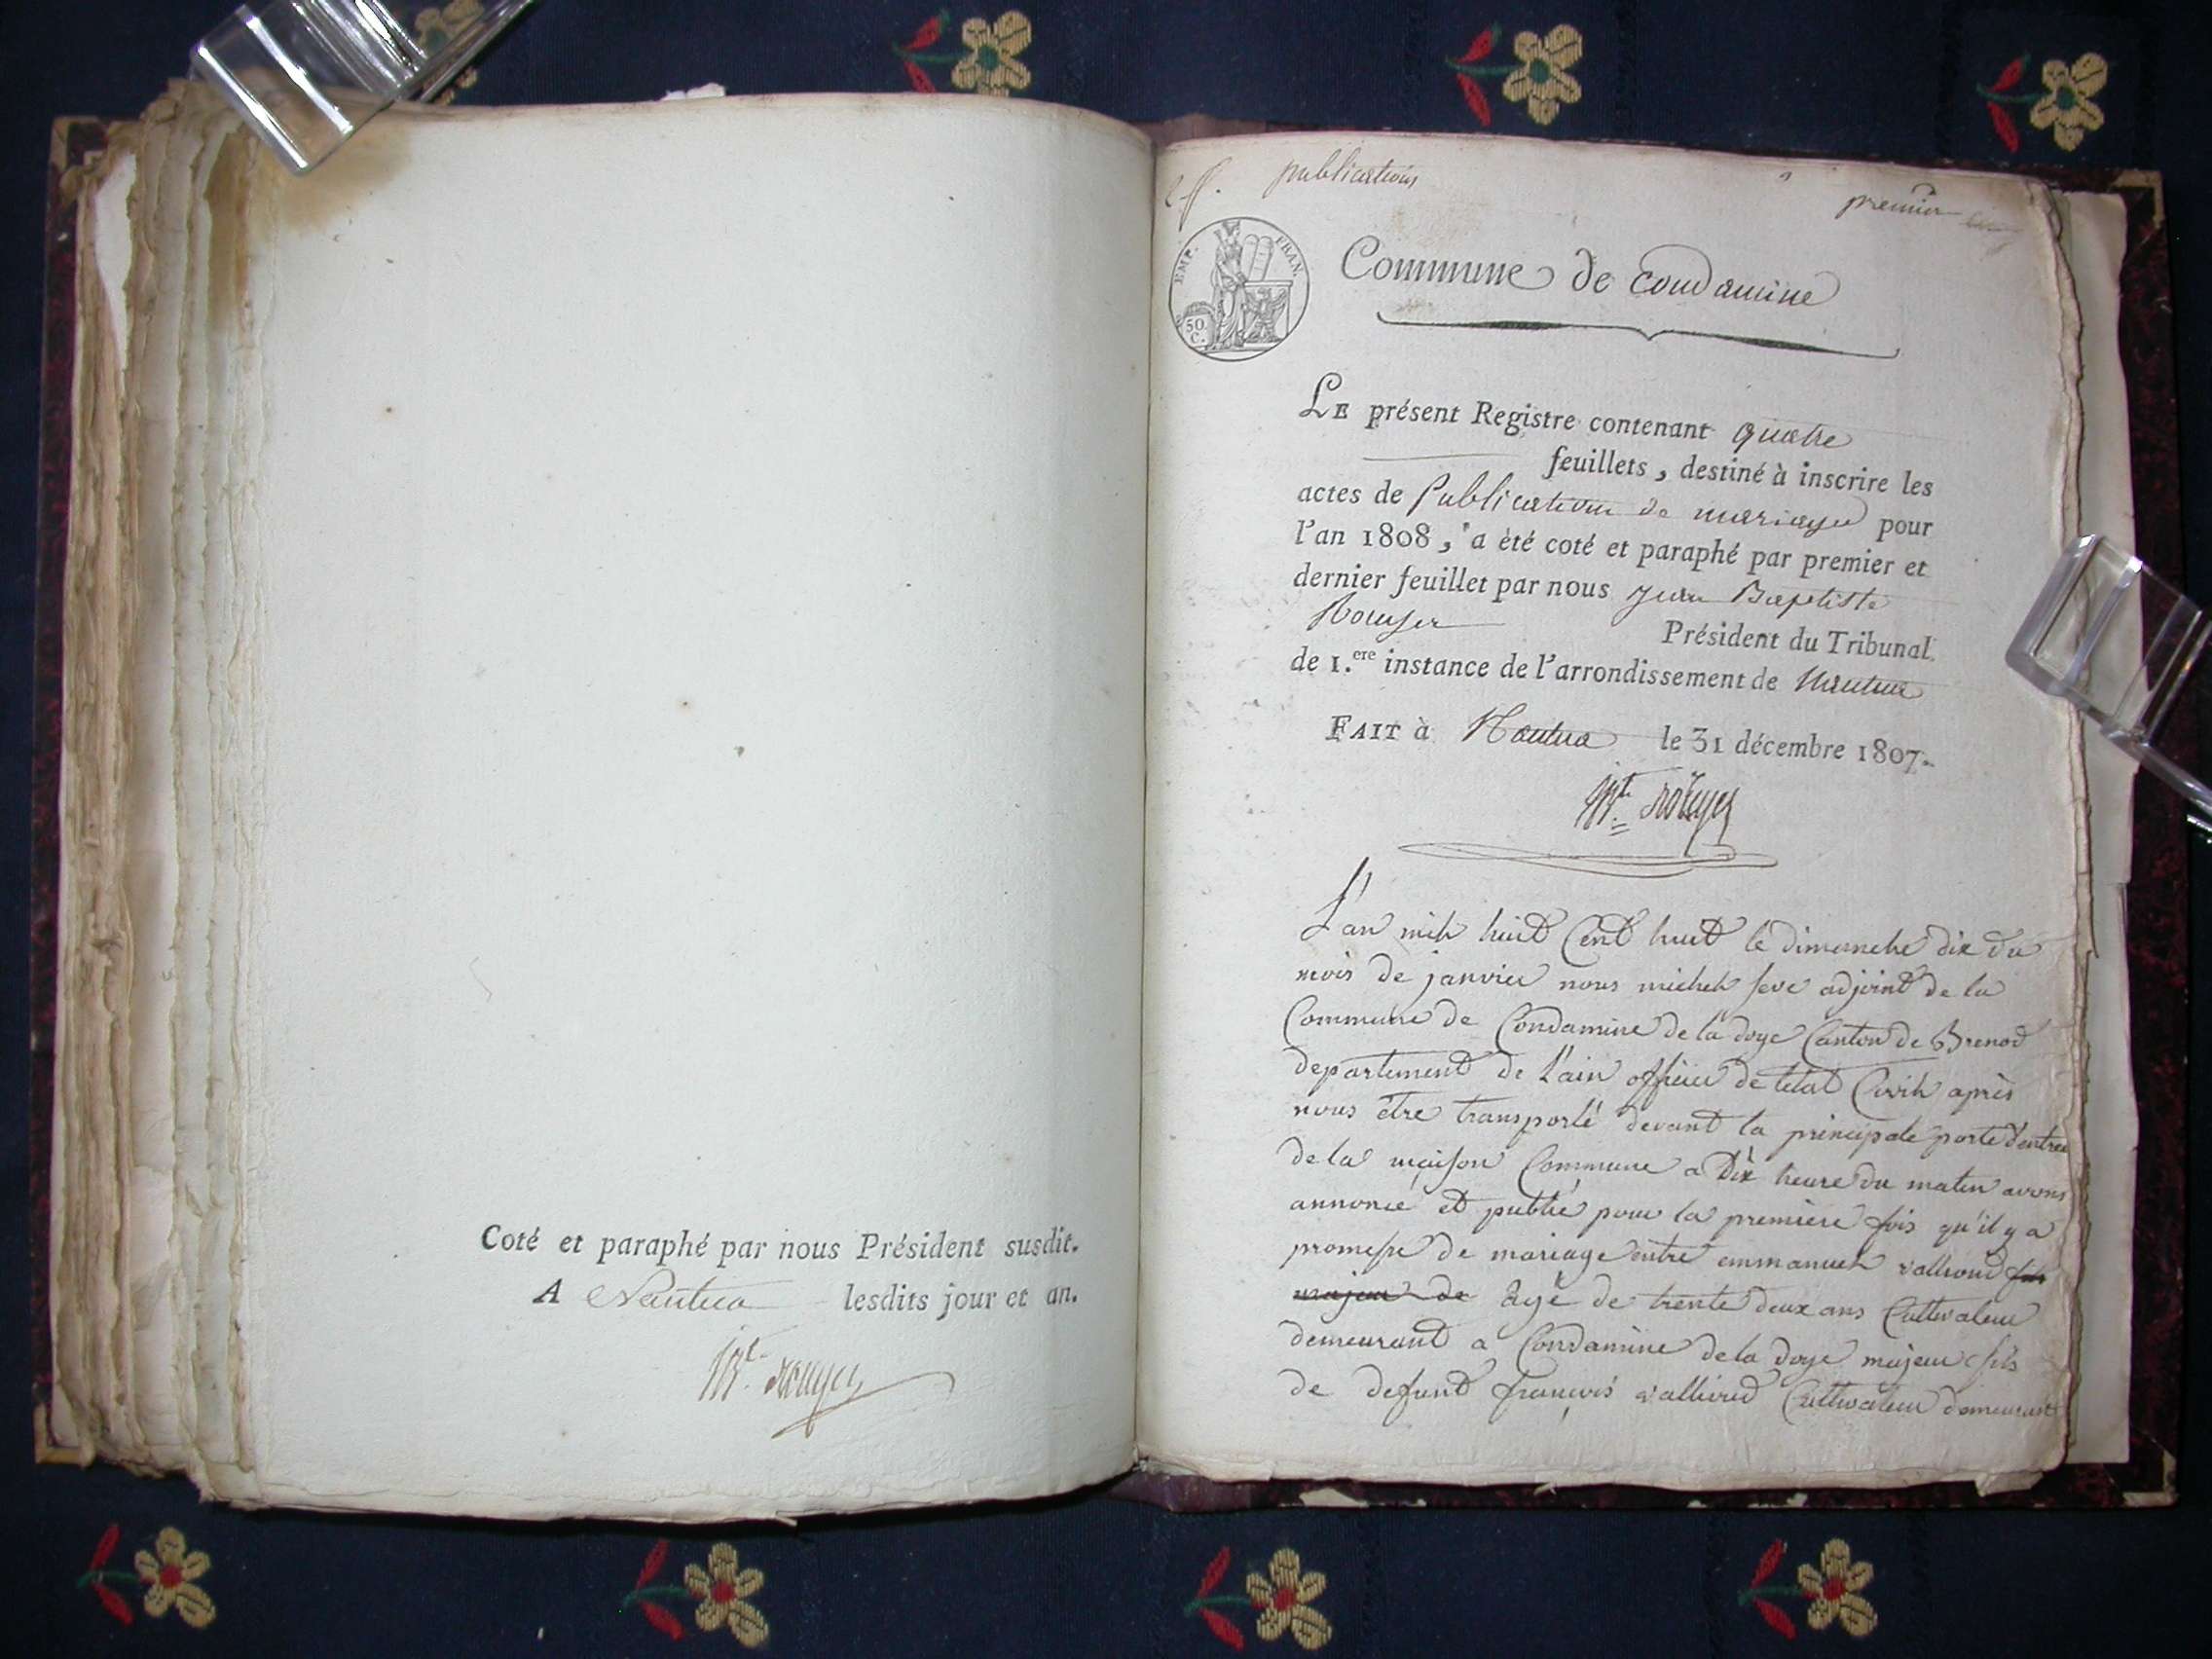 Coté et paraphé par nous Président susdit.
A Nantua lesdits jour et an.
JBte. Rouyer
publications
premier
EMP. FRAN.
50
C.
Commune de Condamine
LE présent Registre contenant quatre
feuillets, destiné à inscrire les
actes de Publication de mariage pour
l'an 1808, a été coté et paraphé par premier et
dernier feuillet par nous Jean Baptiste
Rouyer Président du Tribunal
de 1.ere instance de l'arrondissement de Nantua
FAIT à Nantua le 31 décembre 1807.
JBte. Rouyer
L'an mil huit Cent huit le dimanche dix du
mois de janvier nous michel seve adjoint de la
Commune de Condamine de la doye Canton de Brenod
departement de l'ain officier de letat Civil après
nous être transporté devant la principale porte d'entrée
de la maison Commune a Dix heure du matin avons
annoncé et publié pour la premiere fois qu'il y a
promesse de mariage entre emmanuel vallioud fils
majeur de agé de trente deux ans Cultivateur
demeurant a Condamine de la doye majeur fils
de defunt françois vallioud Cultivateur demeurant